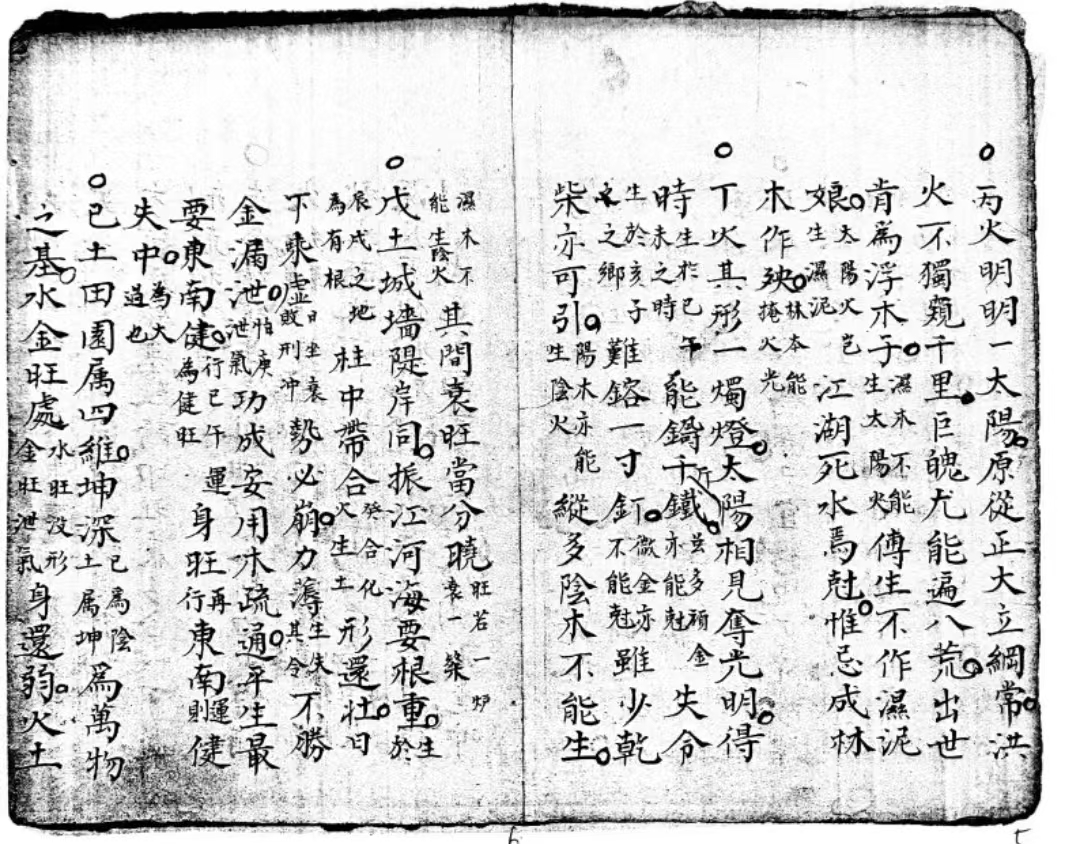 ○丙火明明一太陽原從正大立綱常洪
火不獨窺千里巨魄尤能遍八荒出世
肯為浮木子濕木不能生太陽火傅生不作濕泥
娘太陽火豈生濕泥江湖死水焉尅惟忌成林
木作殃林本能掩火光
○丁火其形一燭燈太陽相見奪光明得
時生於巳午未之時能鑄千斤鐵並多頑金亦能尅失令
生於亥子之鄉難鎔一寸釘微金亦不能尅雖少乾
柴亦可引陽木亦能生陰火縱多陰木不能生
濕木不能生陰火其間衰旺當分曉旺若一炉衰一
○戊土城墻隄岸同振江河海要根重生於
辰戌之地為有根柱中帶合癸合化火生土形還壮日
下乘虛日坐衰敗刑冲勢必崩力薄生失其令不勝
金漏泄怕庚泄氣功成安用木疏通平生最
要東南健行巳午運為健旺身旺再行東南運則健
失中為大道也
○已土田園属四維坤深已為陰土属坤為萬物
之基水金旺處水旺没形金旺泄氣身還弱火土
6
5